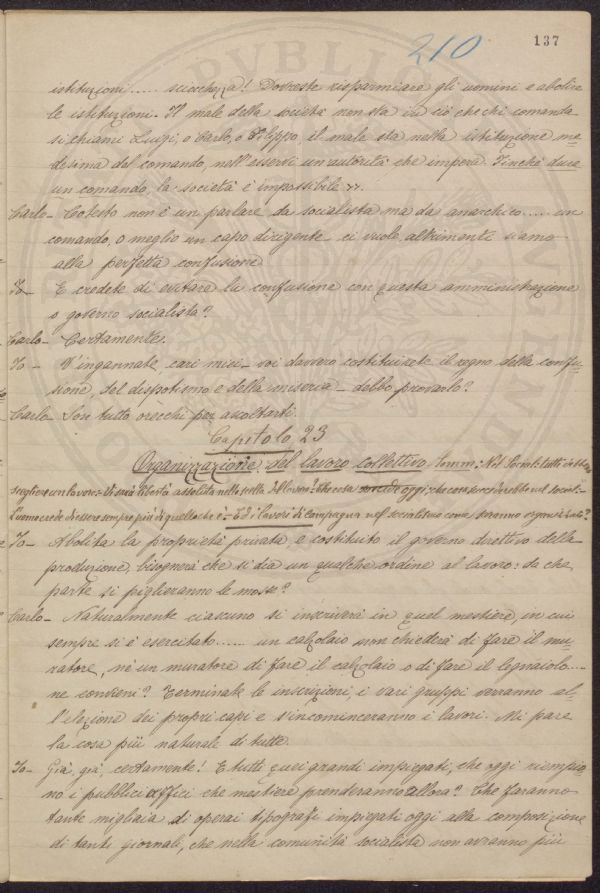 210 137
istituzioni ..... sciocchezza! Dovreste risparmiare gli uomini e abolire
le istituzioni. Il male della società non sta in ciò che chi comanda
si chiami Luigi, o Carlo, o Filippo il male sta nella istituzione me-
desima del comando, nell'esservi un'autorità che impera. Finchè dura
un comando, la società è impossibile
Carlo - Cotesto non è un parlare da socialista ma da anarchico ..... un
comando, o meglio un capo dirigente ci vuole, altrimenti siamo
alla perfetta confusione
Io - E credete di evitare la confusione con questa amministrazione
o governo socialista?
Carlo - Certamente.
Io - V'ingannate, cari miei - voi davvero costituirete il regno della confu-
sione, del despotismo e della miseria - debbo provarlo?
Carlo - Son tutto orecchi per ascoltarti.
Capitolo 23
Organizzazione del lavoro collettivo Somm: Nel Social: tutti
scegliere un lavoro: - Vi sarà libertà assoluta nella scelta del lavoro? Che cosa oggi, che cosa succederebbe nel social: -
L'uomo crede di essere sempre più di quello che è - Ed i lavori di Campagna nel socialismo come saranno organizzati?
Io - Abolita la proprietà privata e costituito il governo direttivo della
produzione, bisognerà che si dia un qualche ordine al lavoro: da che
parte si piglieranno le mosse?
Carlo - Naturalmente ciascuno si inscriverà in quel mestiere, in cui
sempre si è esercitato ...... un calzolaio non chiederà di fare il mu-
ratore, nè un muratore di fare il calzolaio o di fare il legnaiolo ...
ne convieni? Terminate le inscrizioni, i vari gruppi verranno al-
l'elezione dei propri capi e s'incominceranno i lavori. Mi pare
la cosa più naturale di tutte.
Io - Già, già, certamente! E tutti quei grandi impiegati, che oggi riempio-
no i pubblici uffici che mestiere prenderanno allora? Che faranno
tante migliaia di operai tipografi impiegati oggi alla composizione
di tanti giornali, che nella comunità socialista non avranno più